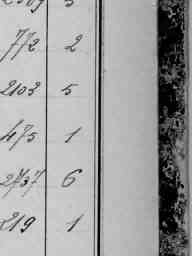 772 2
2103 5
475 1
2737 6
219 1